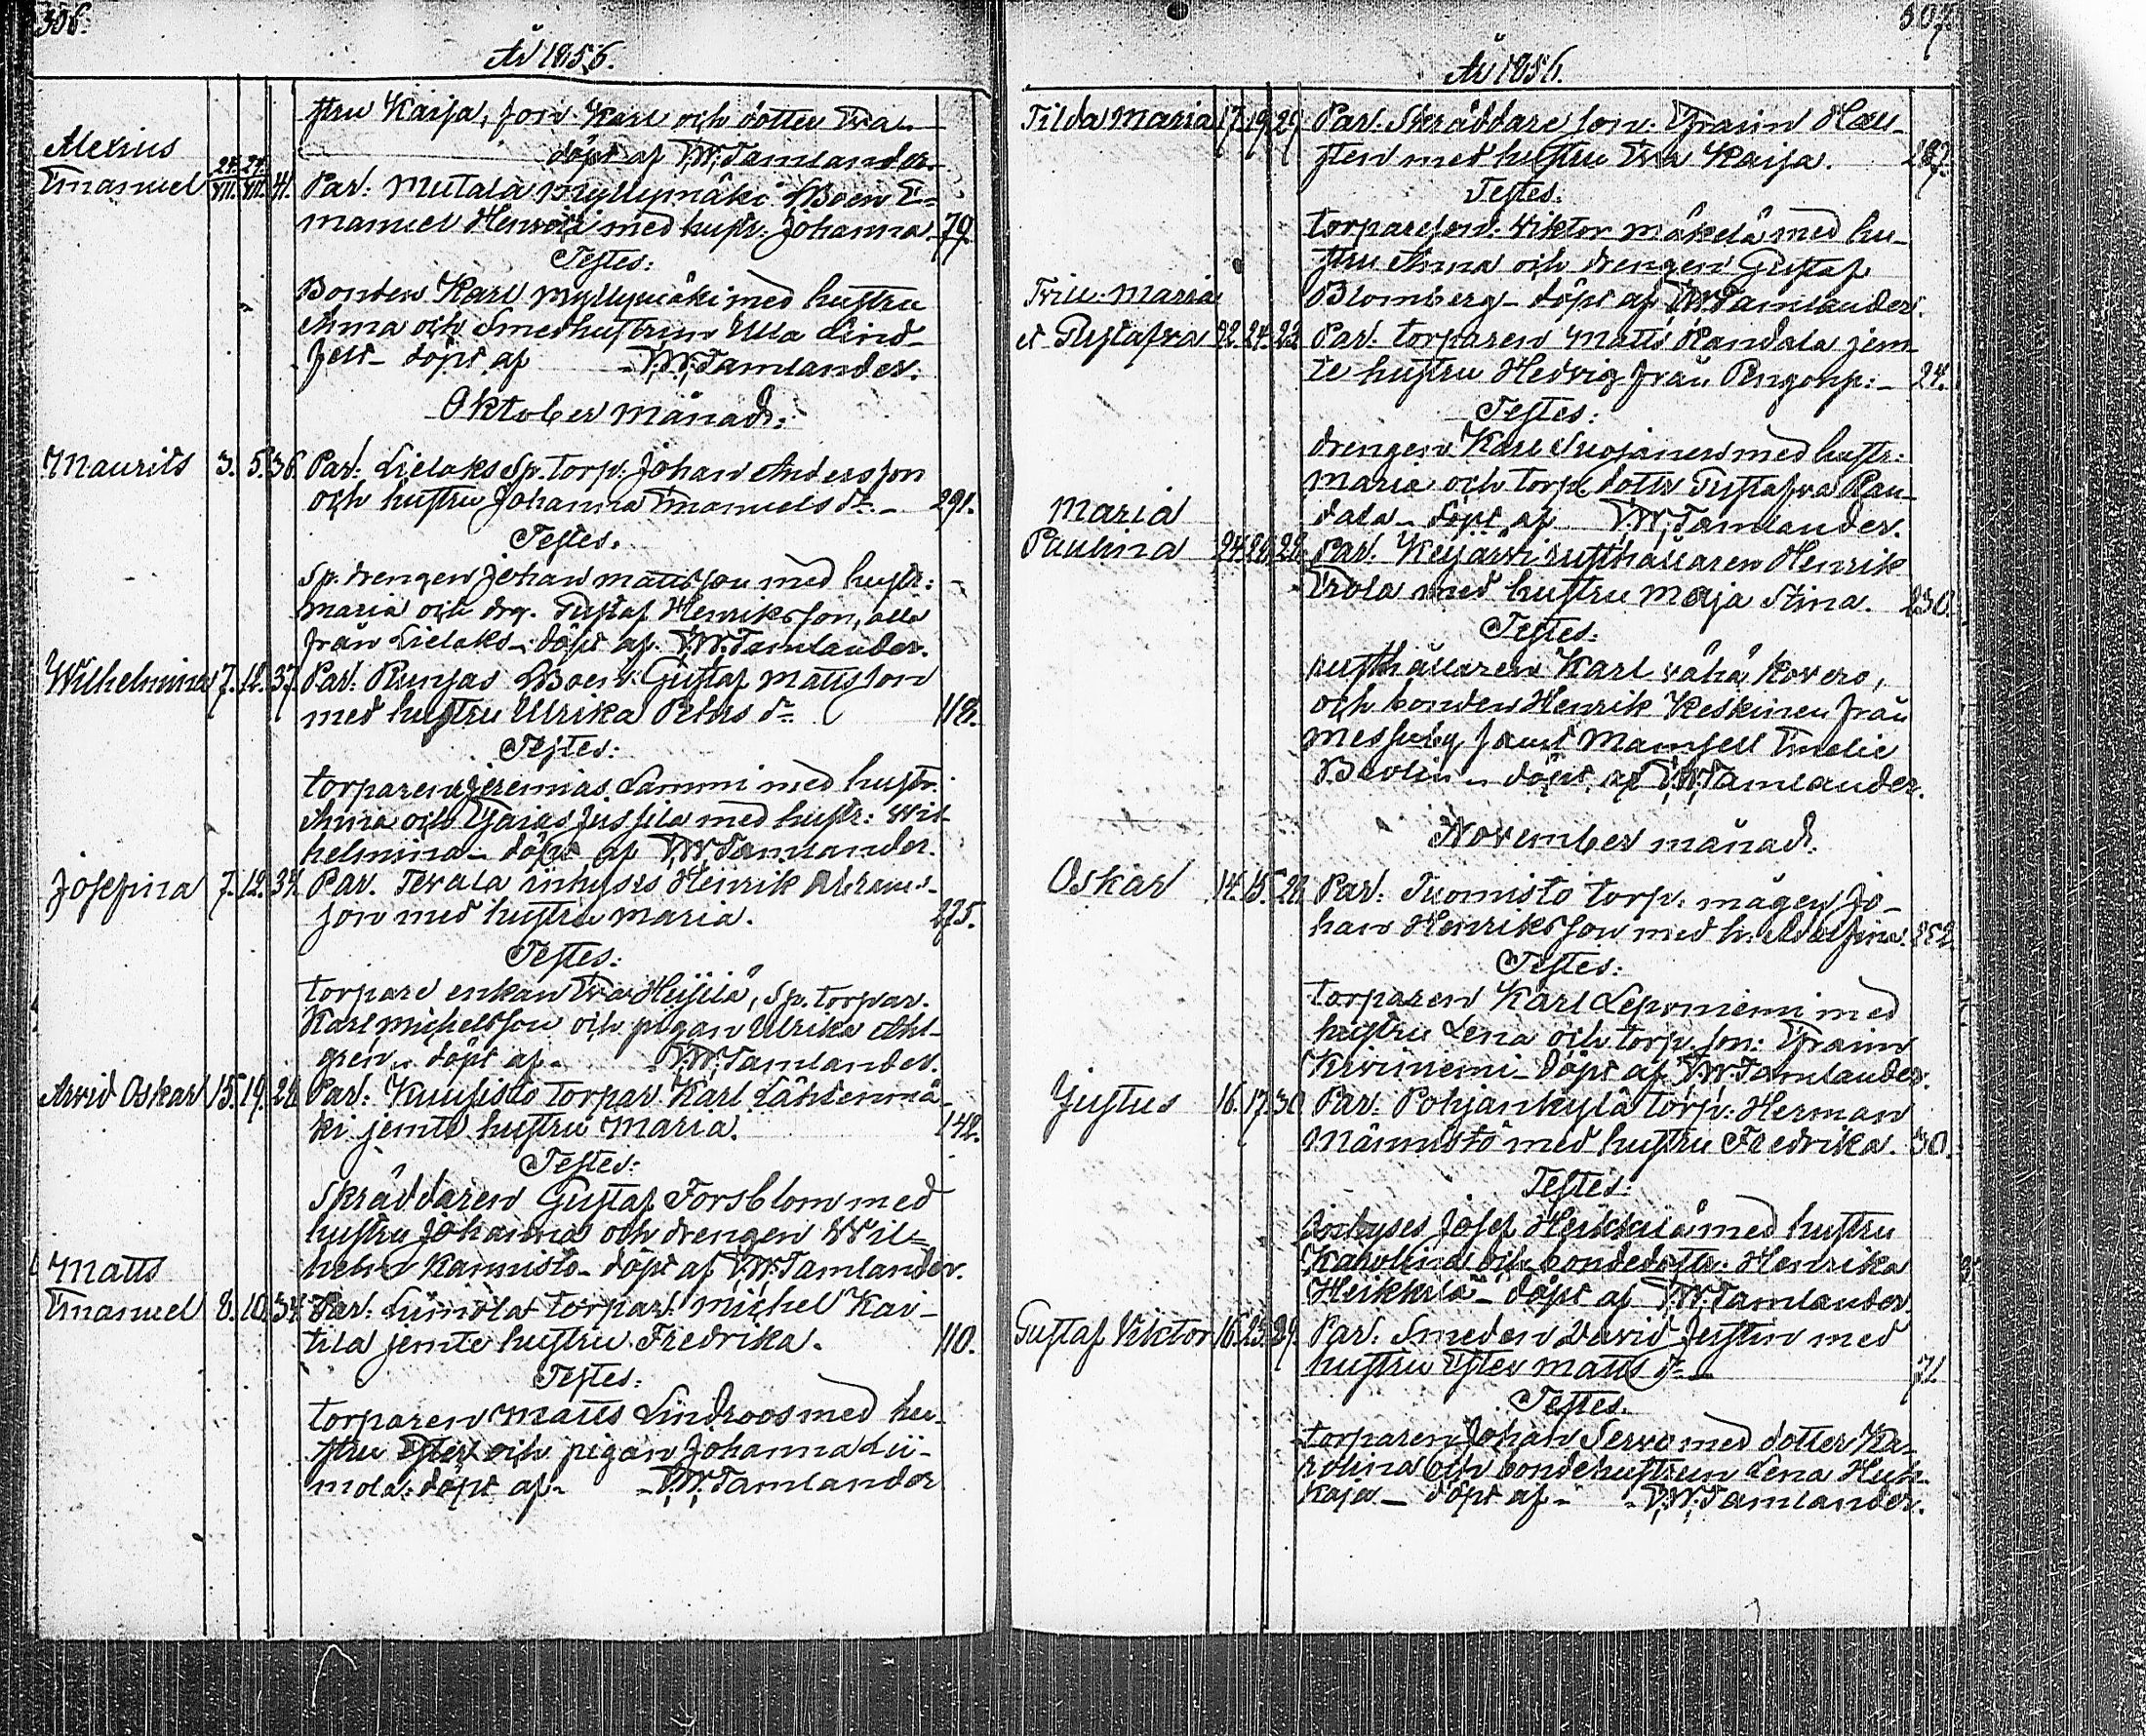 306.
År 1856.
stru Kaisa, son Karl och dotter Eva
döpt af F.W. Tamlander.
Alexius
Emanuel 24. VII. 24. VII. 41. Par: Mutala Myllymäki Åboen E-
manuel Henrici med hustr. Johanna. 79.
Testes:
Bonden Karl Myllymäki med hustru
Anna och Smedhustrun Ulla Lind-
felt - döpt af F.W. Tamlander.
Oktober månad:
Maurits 3. 5. 36. Par: Lielaks Sp. torp: Johan Andersson
och hustru Johanna Emanuelsdr. - 291.
Testes.
Sp. drengen Johan Mattsson med hustr:
Maria och drg. Gustaf Henriksson, alla
från Lielaks - döpt af F.W. Tamlander.
Wilhelmina 7. 12. 37. Par: Runsas Åboen Gustaf Mattsson
med hustru Ulrika Pehrs dr. 118.
Testes:
torparen Jeremias Lammi med hustr.
Anna och Esaias Jussila med hustr: Wil-
helmina - döpt af F.W. Tamlander.
Josefina 7. 12. 34. Par. Tevala inhyses Henrik Abrams-
son med hustru Maria. 275.
Testes:
torpare enkan Eva Heijilä, Sp. torpar.
Karl Michelsson och pigan Ulrika Ahl-
gren - döpt af F.W. Tamlander.
Arvid Oskar 15. 19. 28. Par: Kuusisto torpar. Karl Lähtenmä-
ki jemte hustru Maria. 142.
Testes:
Skräddaren Gustaf Forsblom med
hustru Johanna och drengen Wil-
helm Kannisto - döpt af F.W. Tamlander.
Matts
Emanuel 8. 10. 34. Par: Liimola torpar. Michel Kai-
tila jemte hustru Fredrika. 110.
Testes:
torparen Matts Lindroos med hu-
stru Ester och pigan Johanna Lii-
mola: döpt af - F.W. Tamlander
307.
År 1856.
Tilda Maria 17. 19. 29. Par. Skräddare son: Efraim Hell-
sten med hustru Eva Kaisa. 287.
Testes:
torpareson: Viktor Mäkelä med hu-
stru Anna och drengen Gustaf
Blomberg - döpt af F.W. Tamlander.
Tvill: Maria
et Gustafva 22. 24. 22. Par. torparen Matts Randala jem-
te hustru Hedvig från Pengonp: - 24.
Testes:
drengen Karl Suojanen med hustr:
Maria och torp. dottr Gustafva Ran-
dala - döpt af F.W. Tamlander.
Maria
Paulina 24. 26. 28. Par. Keijärvi rusthållaren Henrik
Erola med hustru Maja Stina. 230.
Testes:
rusthållaren Karl Vähä Kovero,
och bonden Henrik Keskinen från
Messuby samt Mamsell Emelie
Berlin - döpt af F.W. Tamlander.
November månad:
Oskar 14. 15. 28. Par: Tuomisto torp. mågen Jo-
han Henriksson med h. Adolfina. 252
Testes:
torparen Karl Leponiemi med
hustru Lena och torp. son: Efraim
Kiviniemi - döpt af F.W. Tamlander.
Justus 16. 17. 30. Par: Pohjankylä torp: Herman
Männistö med hustru Fredrika. 30.
Testes:
inhyses Josef Heikkilä med hustru
Karolina och bondedottr: Henrika
Heikkilä - döpt af F.W. Tamlander.
Gustaf Viktor 16. 23. 29. Par: Smeden David Justin med
hustru Ester Matts dr - 72
Testes.
torparen Johan Servo med dotter Ka-
rolina och bondehustrun Lena Huh-
kaja - döpt af - F.W. Tamlander.